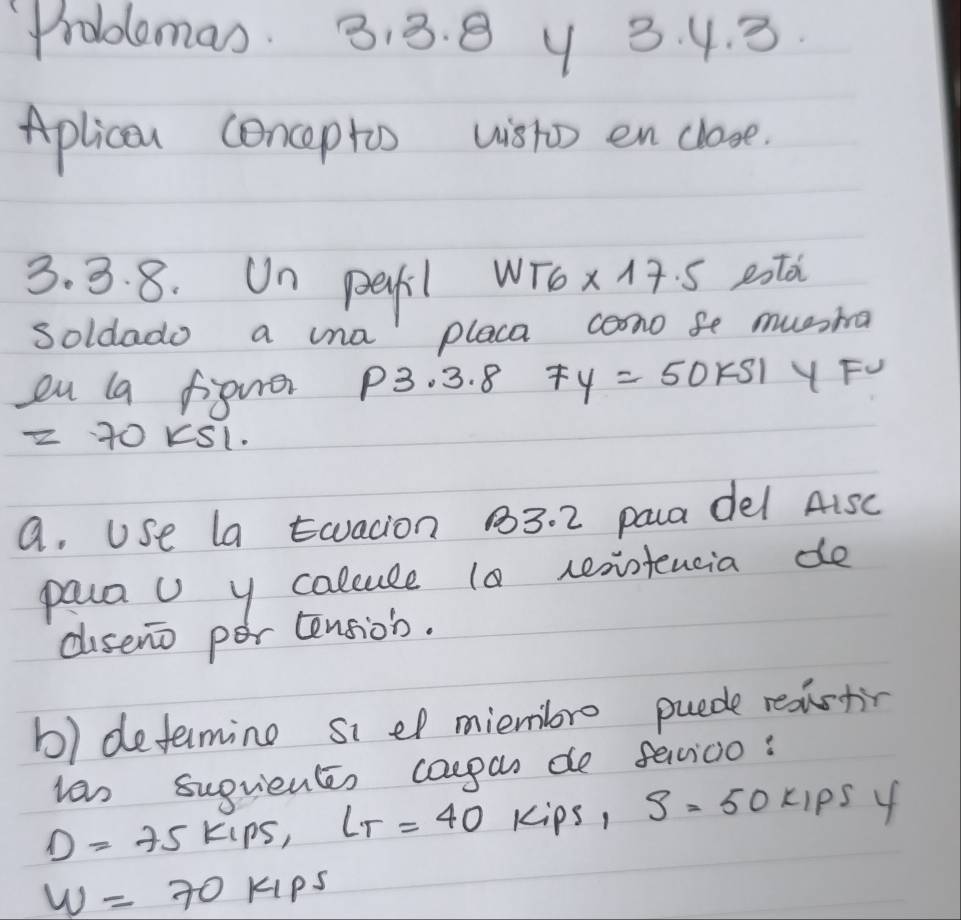 Problemas. 3.3.8 y 3.4.3.
Aplicar conceptos vistos en clase.
3.3.8. Un perfil WT6 x 17.5 está
soldado a una placa como se muestra
en la figura P3.3.8 Fy = 50KSI y Fu
= 70 KSI.
a. Use la Ecuacion B3.2 para del AISC
para U y calcule la resistencia de
diseño por tensión.
b) determine si el miembro puede resistir
las siguientes cargas de servicio:
D = 75 Kips, Lr = 40 Kips, S = 50 KIPS y
W = 70 KIPS